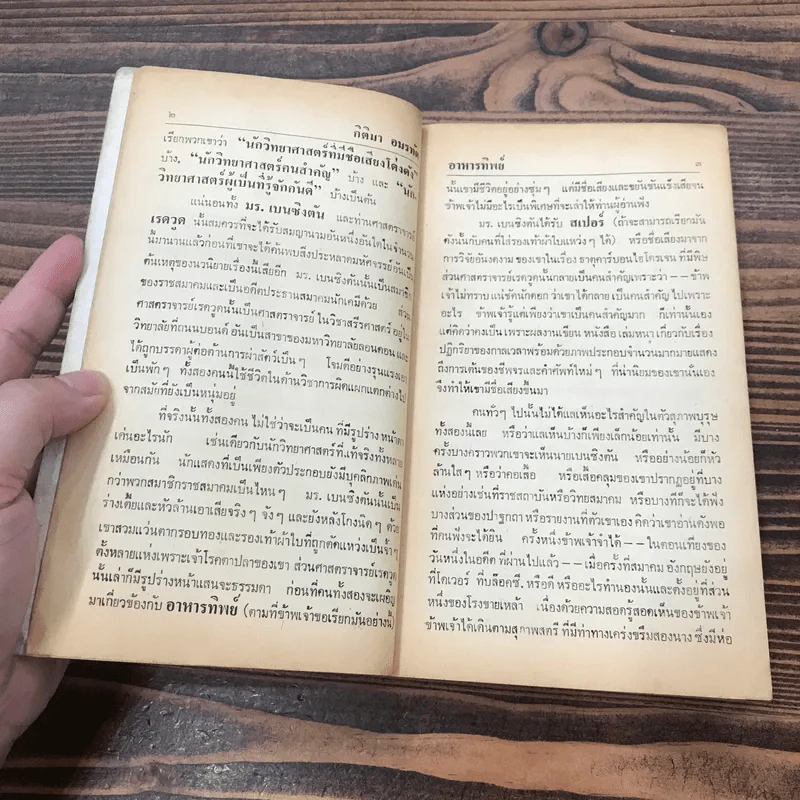 ๒
กิติมา อมรทัต
เรียกพวกเขาว่า “นักวิทยาศาสตร์ที่มีชื่อเสียงโด่งดัง”
บ้าง, “นักวิทยาศาสตร์คนสำคัญ” บ้าง และ “นัก-
วิทยาศาสตร์ผู้เป็นที่รู้จักกันดี” บ้างเป็นต้น
แน่นอนทั้ง มร. เบนซิงตัน และท่านศาสตราจารย์
เรดวูด นั้นสมควรที่จะได้รับสมญานามอันหนึ่งอันใดในจำนวน
นี้มานานแล้วก่อนที่เขาจะได้ค้นพบสิ่งประหลาดมหัศจรรย์อันเป็น
ต้นเหตุของนวนิยายเรื่องนี้เสียอีก มร. เบนซิงตันนั้นเป็นสมาชิก
ของราชสมาคมและเป็นอดีตประธานสมาคมนักเคมีด้วย ส่วน
ศาสตราจารย์เรดวูดนั้นเป็นศาสตราจารย์ ในวิชาสรีรศาสตร์ อยู่ใน
วิทยาลัยที่ถนนบอนด์ อันเป็นสาขาของมหาวิทยาลัยลอนดอน และ
ได้ถูกบรรดาผู้ต่อต้านการผ่าสัตว์เป็นๆ โจมตีอย่างรุนแรงเอา
เป็นพักๆ ทั้งสองคนนี้ใช้ชีวิตในด้านวิชาการผิดแผกแตกต่างไป
จากสมัยที่ยังเป็นหนุ่มอยู่
ที่จริงนั้นทั้งสองคน ไม่ใช่ว่าจะเป็นคน ที่มีรูปร่าง หน้าตา
เด่นอะไรนัก เช่นเดียวกับนักวิทยาศาสตร์ที่แท้จริงทั้งหลาย
เหมือนกัน นักแสดงที่เป็นเพียงตัวประกอบยังมีบุคลิกภาพเด่น
กว่าพวกสมาชิกราชสมาคมเป็นไหนๆ มร. เบนซิงตันนั้นเป็น
ร่างเตี้ยและหัวล้านเอาเสียจริงๆ จังๆ และยังหลังโกงนิดๆ ด้วย
เขาสวมแว่นตากรอบทองและรองเท้าผ้าใบที่ถูกตัดแหว่งเป็นจ้ำๆ
ตั้งหลายแห่งเพราะเจ้าโรคตาปลาของเขา ส่วนศาสตราจารย์เรดวูด
นั้นเล่าก็มีรูปร่างหน้าแสนจะธรรมดา ก่อนที่คนทั้งสองจะเผอิญ
มาเกี่ยวข้องกับ อาหารทิพย์ (ตามที่ข้าพเจ้าขอเรียกมันอย่างนี้)
อาหารทิพย์
๓
นั้นเขามีชีวิตอยู่อย่างซุ่มๆ แต่มีชื่อเสียงและขยันขันแข็งเสียจน
ข้าพเจ้าไม่มีอะไรเป็นพิเศษที่จะเล่าให้ท่านผู้อ่านฟัง
มร. เบนซิงตันได้รับ สเปอร์ (ถ้าจะสามารถเรียกมัน
ดังนั้นกับคนที่ใส่รองเท้าผ้าใบแหว่งๆ ได้) หรือชื่อเสียงมาจาก
การวิจัยอันงดงาม ของเขาในเรื่อง ธาตุคาร์บอนไฮโดรเจน ที่มีพิษ
ส่วนศาสตราจารย์เรดวูดนั้นกลายเป็นคนสำคัญเพราะว่า — — ข้าพ
เจ้าไม่ทราบ แน่ชัดนักดอก ว่าเขาได้กลาย เป็นคนสำคัญ ไปเพราะ
อะไร ข้าพเจ้ารู้แต่เพียงว่าเขาเป็นคนสำคัญมาก ก็เท่านั้นเอง
แต่คิดว่าคงเป็น เพราะผลงานเขียน หนังสือ เล่มหนา เกี่ยวกับเรื่อง
ปฏิกริยาของกาลเวลาพร้อมด้วยภาพประกอบจำนวนมากมายแสดง
ถึงการเต้นของชีพจรและคำศัพท์ใหม่ๆ ที่น่านิยมของเขานั่นเอง
จึงทำให้เขามีชื่อเสียงขึ้นมา
คนทั่วๆ ไปนั้นไม่ได้แลเห็นอะไรสำคัญในตัวสุภาพบุรุษ
ทั้งสองนี้เลย หรือว่าแลเห็นบ้างก็เพียงเล็กน้อยเท่านั้น มีบาง
ครั้งบางคราวพวกเขาจะเห็นนายเบนซิงตัน หรืออย่างน้อยก็หัว
ล้านใสๆ หรือว่าคอเสื้อ หรือเสื้อคลุมของเขาปรากฏอยู่ที่บาง
แห่งอย่างเช่นที่ราชสถาบันหรือวิทยสมาคม หรือบางทีก็จะได้ฟัง
บางส่วนของปาฐกถา หรือรายงานที่ตัวเขาเอง คิดว่าเขาอ่านดังพอ
ที่คนฟังจะได้ยิน ครั้งหนึ่งข้าพเจ้าจำได้ — — ในตอนเที่ยงของ
วันหนึ่งในอดีต ที่ผ่านไปแล้ว — — เมื่อครั้งที่สมาคม อังกฤษยังอยู่
ที่โดเวอร์ ที่บล๊อคซี. หรือดี หรืออะไรทำนองนั้นและตั้งอยู่ที่ส่วน
หนึ่งของโรงขายเหล้า เนื่องด้วยความสอดรู้สอดเห็นของข้าพเจ้า
ข้าพเจ้าได้เดินตามสุภาพสตรี ที่มีท่าทางเคร่งขรึมสองนาง ซึ่งมีห่อ